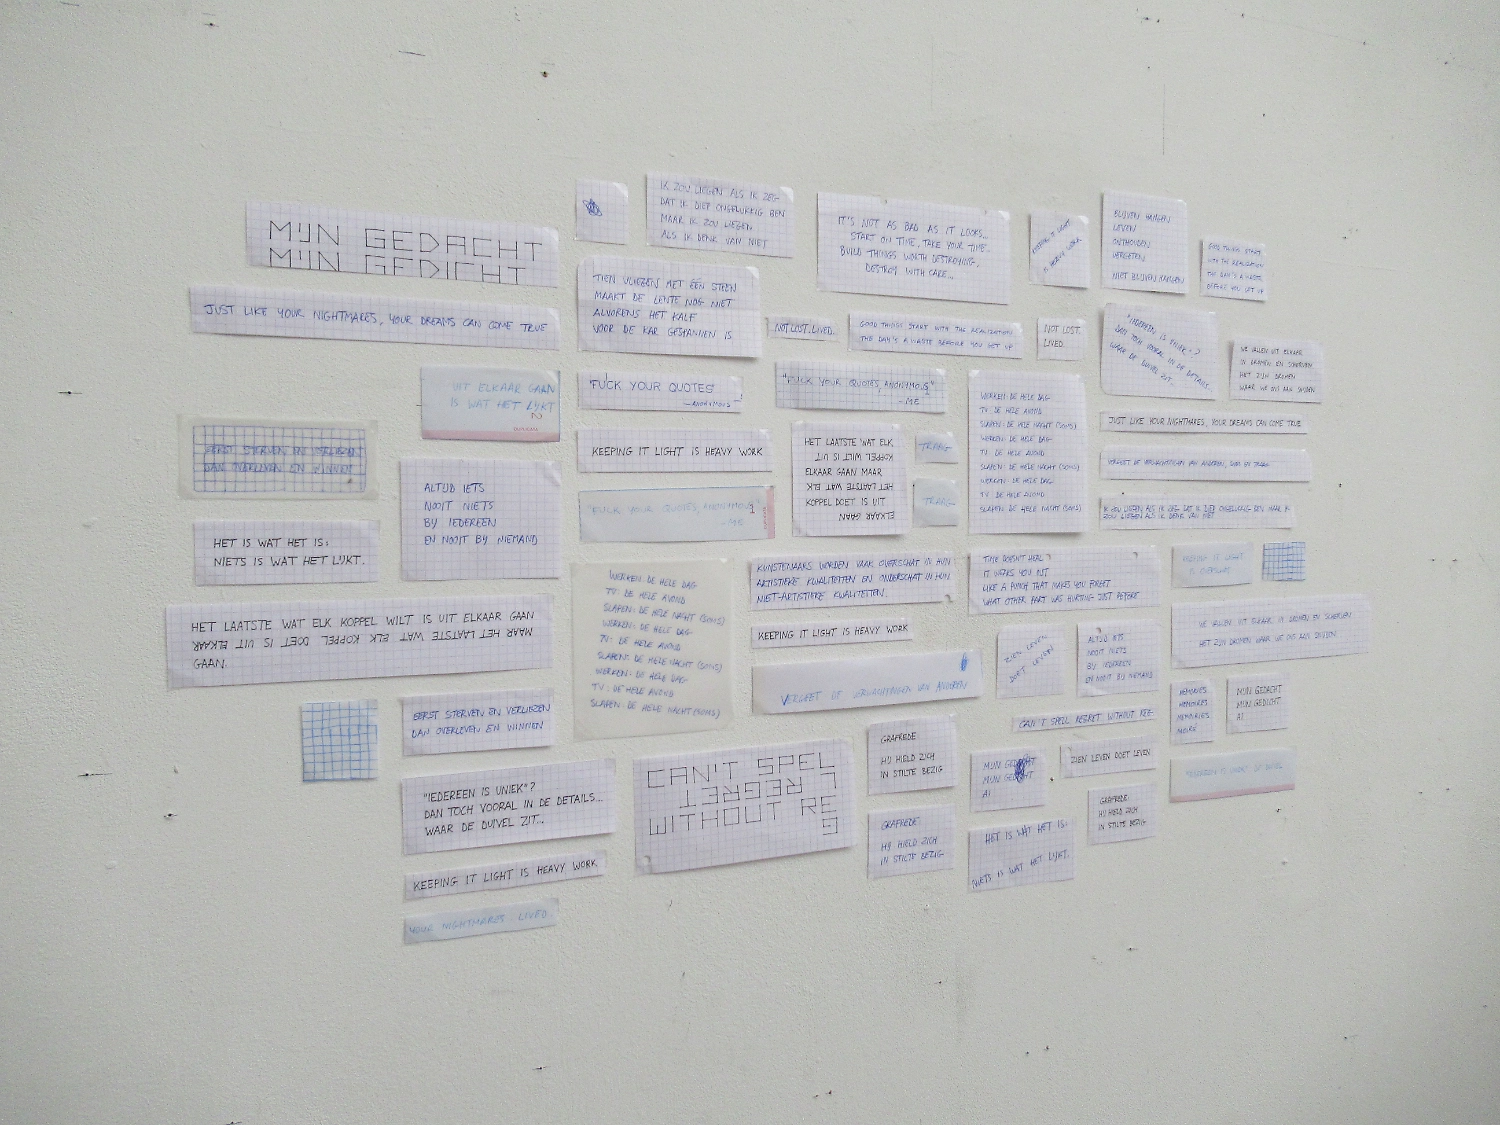 MIJN GEDACHT
MIJN GEDICHT
JUST LIKE YOUR NIGHTMARES, YOUR DREAMS CAN COME TRUE
UIT ELKAAR GAAN
IS WAT HET LIJKT
EERST STERVEN EN VERLIEZEN
DAN OVERLEVEN EN WINNEN
ALTIJD IETS
NOOIT NIETS
BIJ IEDEREEN
EN NOOIT BIJ NIEMAND
HET IS WAT HET IS:
NIETS IS WAT HET LIJKT.
HET LAATSTE WAT ELK KOPPEL WILT IS UIT ELKAAR GAAN
MAAR HET LAATSTE WAT ELK KOPPEL DOET IS UIT ELKAAR
GAAN.
EERST STERVEN EN VERLIEZEN
DAN OVERLEVEN EN WINNEN
"IEDEREEN IS UNIEK"?
DAN TOCH VOORAL IN DE DETAILS...
WAAR DE DUIVEL ZIT...
KEEPING IT LIGHT IS HEAVY WORK
YOUR NIGHTMARES LIVED
IK ZOU LIEGEN ALS IK ZEG
DAT IK DIEP ONGELUKKIG BEN
MAAR IK ZOU LIEGEN
ALS IK DENK VAN NIET
TIEN VLIEGEN MET ÉÉN STEEN
MAAKT DE LENTE NOG NIET
ALVORENS HET KALF
VOOR DE KAR GESPANNEN IS
"FUCK YOUR QUOTES"
- ANONYMOUS
KEEPING IT LIGHT IS HEAVY WORK
"FUCK YOUR QUOTES, ANONYMOUS"
- ME
WERKEN: DE HELE DAG
TV: DE HELE AVOND
SLAPEN: DE HELE NACHT (SOMS)
WERKEN: DE HELE DAG
TV: DE HELE AVOND
SLAPEN: DE HELE NACHT (SOMS)
WERKEN: DE HELE DAG
TV: DE HELE AVOND
SLAPEN: DE HELE NACHT (SOMS)
CAN'T SPELL
REGRET
WITHOUT RE
G
IT'S NOT AS BAD AS IT LOOKS...
START ON TIME, TAKE YOUR TIME...
BUILD THINGS WORTH DESTROYING,
DESTROY WITH CARE...
NOT LOST. LIVED.
GOOD THINGS START WITH THE REALIZATION
THE DAY'S A WASTE BEFORE YOU GET UP
NOT LOST.
LIVED.
"FUCK YOUR QUOTES, ANONYMOUS"
- ME
HET LAATSTE WAT ELK
KOPPEL WILT IS UIT
ELKAAR GAAN MAAR
HET LAATSTE WAT ELK
KOPPEL DOET IS UIT
ELKAAR GAAN
TRAAG
TRAAG
WERKEN: DE HELE DAG
TV: DE HELE AVOND
SLAPEN: DE HELE NACHT (SOMS)
WERKEN: DE HELE DAG
TV: DE HELE AVOND
SLAPEN: DE HELE NACHT (SOMS)
WERKEN: DE HELE DAG
TV: DE HELE AVOND
SLAPEN: DE HELE NACHT (SOMS)
KUNSTENAARS WORDEN VAAK OVERSCHAT IN HUN
ARTISTIEKE KWALITEITEN EN ONDERSCHAT IN HUN
NIET-ARTISTIEKE KWALITEITEN.
KEEPING IT LIGHT IS HEAVY WORK
VERGEET DE VERWACHTINGEN VAN ANDEREN
GRAFREDE:
HIJ HIELD ZICH
IN STILTE BEZIG
GRAFREDE:
HIJ HIELD ZICH
IN STILTE BEZIG
KEEPING IT LIGHT
IS HEAVY WORK
BLIJVEN HANGEN
LEVEN
ONTHOUDEN
VERGETEN
NIET BLIJVEN HANGEN
GOOD THINGS START
WITH THE REALIZATION
THE DAY'S A WASTE
BEFORE YOU GET UP
"IEDEREEN IS UNIEK"?
DAN TOCH VOORAL IN DE DETAILS...
WAAR DE DUIVEL ZIT...
WE VALLEN UIT ELKAAR
IN DROMEN EN SCHERVEN
HET ZIJN DROMEN
WAAR WE ONS AAN SNIJDEN
JUST LIKE YOUR NIGHTMARES, YOUR DREAMS CAN COME TRUE
VERGEET DE VERWACHTINGEN VAN ANDEREN
IK ZOU LIEGEN ALS IK ZEG DAT IK DIEP ONGELUKKIG BEN MAAR IK
ZOU LIEGEN ALS IK DENK VAN NIET
TIME DOESN'T HEAL
IT WEARS YOU OUT
LIKE A PUNCH THAT MAKES YOU FORGET
WHAT OTHER PART WAS HURTING JUST BEFORE
KEEPING IT LIGHT
ZIEN LEVEN
DOET LEVEN
ALTIJD IETS
NOOIT NIETS
BIJ IEDEREEN
EN NOOIT BIJ NIEMAND
WE VALLEN UIT ELKAAR IN DROMEN EN SCHERVEN
HET ZIJN DROMEN WAAR WE ONS AAN SNIJDEN
CAN'T SPELL REGRET WITHOUT REG
MEMORIES
MEMOIRES
MEMORIES
MOIRÉ
MIJN GEDACHT
MIJN GEDICHT
AI
MIJN GEDACHT
MIJN GEDICHT
AI
ZIEN LEVEN DOET LEVEN
"IEDEREEN IS UNIEK"
GRAFREDE:
HIJ HIELD ZICH
IN STILTE BEZIG
HET IS WAT HET IS:
NIETS IS WAT HET LIJKT.